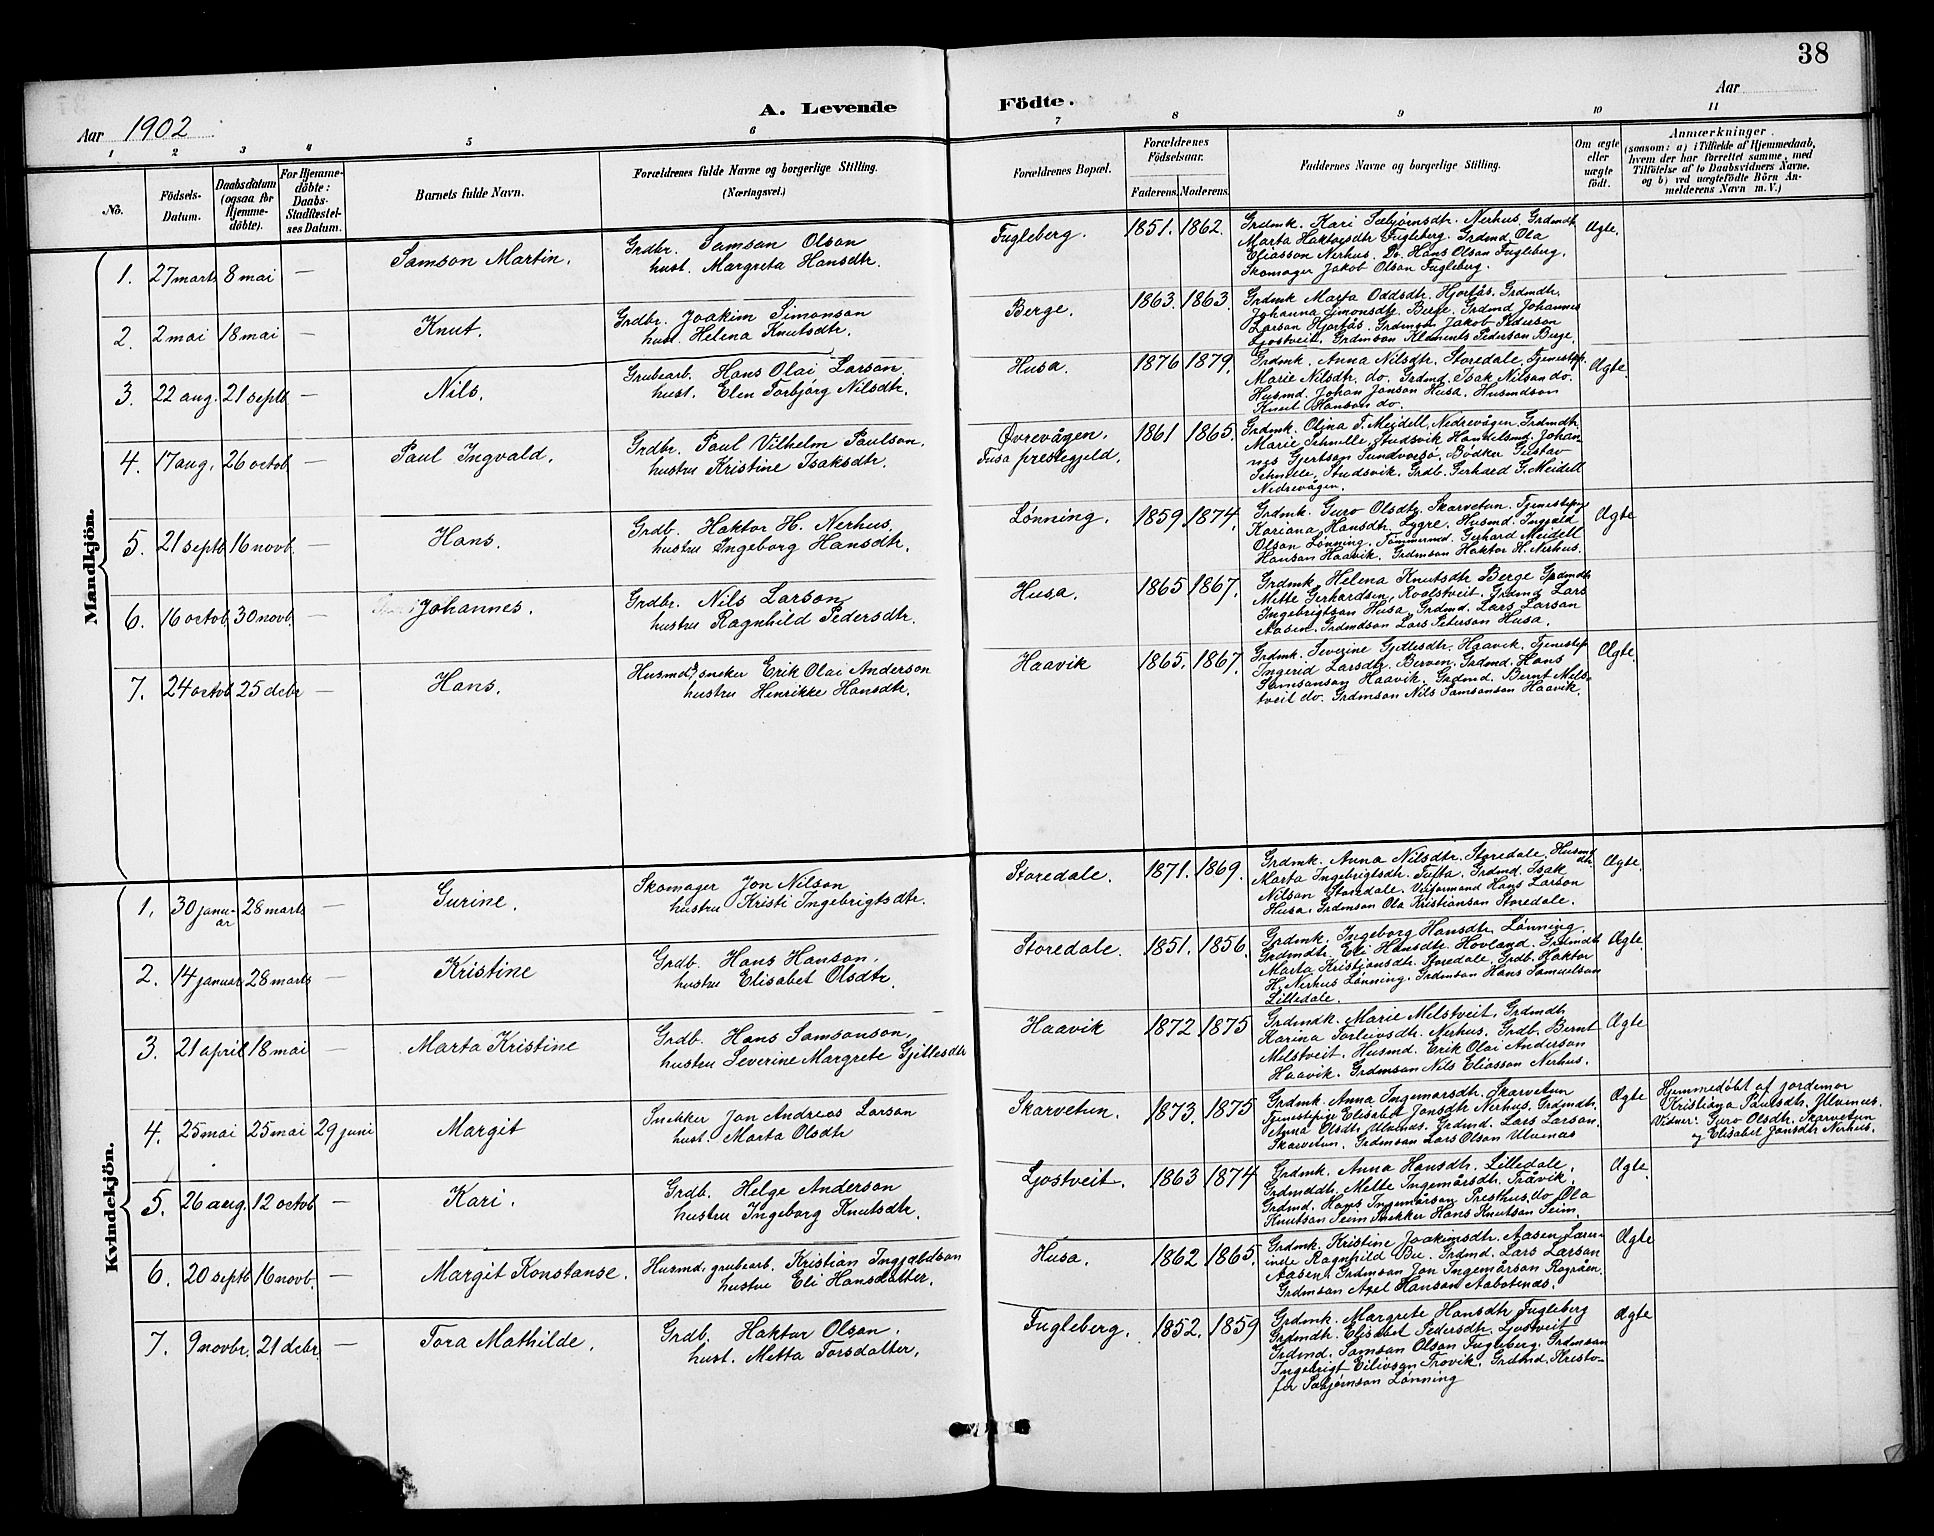 38
A. Levende Födte.
Aar 1902
Aar
1 2 3 4 5 6 7 8 9 10 11
No.
Födsels-
Datum.
Daabsdatum
(ogsaa for
Hjemme-
döbte).
For Hjemme-
döbte:
Daabs-
Stadfæstel-
ses Datum.
Barnets fulde Navn.
Forældrenes fulde Navne og borgerlige Stilling.
(Næringsvei.)
Forældrenes Bopæl.
Forældrenes
Födselsaar.
Faderens. Moderens.
Faddernes Navne og borgerlige Stilling.
Om ægte
eller
uægte
födt.
Anmærkninger
(saasom: a) i Tilfælde af Hjemmedaab,
hvem der har forrettet samme, med
Tilföielse af to Daabsvidners Navne,
og b) ved uægtefödte Börn An-
melderens Navn m. V.)
Mandkjön.
1. 27 marts 8 mai —
Samson Martin.
Grdbr. Samson Olson
hust. Margreta Hansdtr.
Fugleberg. 1851. 1862.
Grdmk. Kari Sæbjørnsdtr. Nerhus, Grdmdt.
Marta Haktorsdtr Fugleberg. Grdmd. Ola
Eliasson Nerhus. Do. Hans Olson Fugleberg,
Skomager Jakob Olson Fugleberg.
Ægte.
2. 2 mai 18 mai —
Knut.
Grdbr. Joakim Simonson
hust. Helena Knutsdtr.
Berge. 1863. 1863.
Grdmk Marta Oddsdtr. Hjortås, Grdmdtr.
Johanna Simonsdtr Berge. Grdmd Johannes
Larson Hjortås. Grdmson Jakob Pederson
Ljostveit. Grdmson Klements Pederson Berge,
3. 22 aug. 21 septb —
Nils.
Grubearb. Hans Olai Larson,
hust. Elen Torbjørg Nilsdtr.
Husa. 1876 1879.
Grdmk. Anna Nilsdtr. Storedale, Tjenestep.
Marie Nilsdtr. do. Grdmd. Isak Nilson do.
Husmd. Johan Janson Husa. Husmdson
Knut Hanson do.
Ægte.
4. 17 aug. 26 octob —
Paul Ingvald.
Grdbr. Paul Vilhelm Paulson.
hustru Kristine Isaksdtr.
Øvrevågen.
Fusa prestegjeld. 1861 1865.
Grdmk. Olina F. Meidell, Nedrevågen, Grdmdtr.
Marie Schnelle, Studsvik Handelsmd. Johan-
nes Gjertson Sundvorsø, Bødker Gustav
Schnelle, Studsvik. Grdb. Gerhard G. Meidell
Nedrevågen.
5. 21 septb 16 novb. —
Hans.
Grdb. Haktor H. Nerhus.
hustru Ingeborg Hansdtr.
Lønning. 1859. 1874.
Grdmk. Guro Olsdtr. Skarvetun. Tjenestepig
Kariana Hansdtr. Lygre. Husmd. Ingjald
Olson Lønning. Tømmermd. Gerhard Meidell
Hanson Haavik. Grdmson Haktor H. Nerhus.
Ægte
6. 16 octob 30 novb. —
Johannes.
Grdbr. Nils Larson
hustru Ragnhild Pedersdtr.
Husa. 1865 1867.
Grdmk. Helena Knutsdtr Berge Grdmdtr
Mette Gerhardsen, Kvalstveit. Grdmd Lars
Ingebrigtson Husa. Grdmd. Lars Larson
Aasen. Grdmdson Lars Peterson Husa.
7. 24 octob 25 debr —
Hans.
Husmd. sneker Erik Olai Anderson
hustru Henrikke Hansdtr.
Haavik 1865. 1867.
Grdmk. Severine Gjillesdtr. Haavik. Tjenestep
Ingerid Larsdtr. Berven. Grdmd. Hans
Samsonson Haavik. Grdmd. Bernt Mels-
tveit do. Grdmson Nils Samsonson Haavik.
Ægte
Kvindekjön.
1. 30 janu-
ar 28 marts —
Gurine.
Skomager Jon Nilson
hustru Kristi Ingebrigtsdtr.
Storedale. 1871. 1869.
Grdmk. Anna Nilsdtr. Storedale, Husmd
dtr
Marta Ingebrigtsdtr. Tufta. Grdmd. Isak
Nilson Storedale. Viseformand Hans Larson
Husa. Grdmson Ola Kristianson Storedale.
Ægte.
2. 14 januar 28 marts —
Kristine
Grdb. Hans Hanson.
hustru Elisabet Olsdtr.
Storedale. 1851. 1856.
Grdmk. Ingeborg Hansdtr Lønning,
Grdmdtr. Eli Hansdtr. Hovland. Grdmdt
Marta Kristiansdtr. Storedale. Grdb. Haktor
H. Nerhus Lønning. Grdmson Hans Samuelson
Lilledale.
Ægte.
3. 21 april 18 mai —
Marta Kristine
Grdb. Hans Samsonson,
hustru Severine Margrete Gjillesdtr
Haavik 1872. 1875
Grdmdk. Marie Milstveit. Grdmdtr
Karina Torleivsdtr. Nerhus. Grdb. Bernt
Melstveit. Husmd. Erik Olai Anderson
Haavik. Grdmson Nils Eliasson Nerhus.
Ægte
4. 25 mai 25 mai 29 juni
Margit
Snekker Jon Andreas Larson
hust. Marta Olsdtr
Skarvetun. 1873. 1875
Grdmk. Anna Ingemarsdtr. Skarvetun
Tjenestepige Elisabet Jonsdtr Nerhus. Grdmdtr.
Anna Olsdtr Ulvenes. Grdmd. Lars Larson,
Skarvetun. Grdmson Lars Olson Ulvenas
Ægte
Hjemmedøbt af jordemor
Kristina Paulsdtr. Ulvenus.
Vidner: Guro Olsdtr. Skarvetun
og Elisabet Jonsdtr Nerhus.
5. 26 aug. 12 octob —
Kari.
Grdb. Helge Anderson
hustru Ingeborg Knutsdtr.
Ljostveit. 1863 1874
Grdmk. Anna Hansdtr. Lilledale,
Grdmddtr. Mette Ingemårsdtr. Tråvik,
Grdmd. Hans Ingemårson Presthus. do Ola
Knutson Seim Snekker Hans Knutson Seim.
Ægte.
6. 20 septb 16 novb. —
Margit Konstanse.
Husmd. grubearb. Kristian Ingjaldson
hustru Eli Hansdatter.
Husa. 1862 1865.
Grdmk. Kristine Joakimsdtr. Aasen Lærer-
inde Ragnhild Bu. Grdmd. Lars Larson
Aasen. Grdmson Jon Ingemårson Rogråen.
Grdmson Axel Hanson Aabotenas.
Ægte
7. 9 novbr. 21 debr. —
Tora Mathilde.
Grdb. Haktor Olson.
hust. Metta Torsdatter.
Fugleberg. 1852. 1859
Grdmk. Margrete Hansdtr Fugleberg
Grdmdtr. Elisabet Pedersdtr. Ljostveit
Grdmd. Samson Olson Fugleberg. Grdmson
Ingebrigt Eilivson Trovik. Grdmd. Kresto-
fer Sæbjørnson Lønning
Ægte